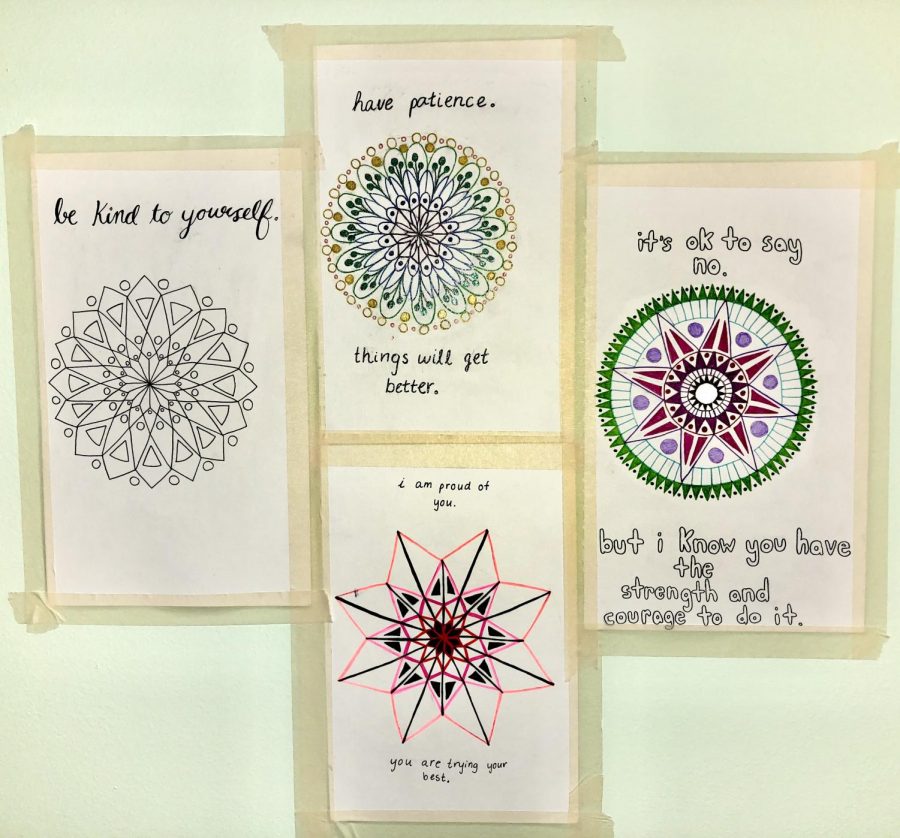 be kind to yourself.
have patience.
things will get
better.
i am proud of
you.
you are trying your
best.
it's ok to say
no.
but i know you have
the
strength and
courage to do it.